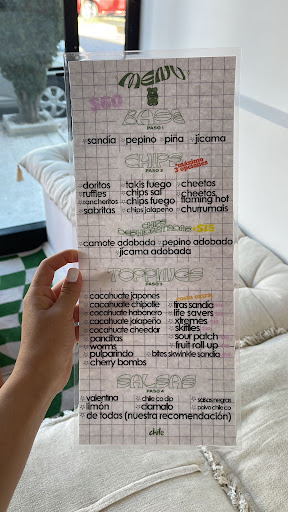 MENU
$60
BASE
PASO 1
sandia pepino piña jicama
CHIPS
PASO 2
*máximo
2 opciones
doritos takis fuego cheetos
ruffles chips sal cheetos
rancheritos chips fuego flaming hot
sabritas chips jalapeño churrumais
CHIPS
+$15
camote adobado pepino adobado
jicama adobada
TOPPINGS
PASO 3
cacahuate japones
cacahuate chipotle tiras sandia
cacahuate habanero life savers
cacahuate jalapeño xtremes
cacahuate cheedar skittles
panditas sour patch
worms fruit roll up
pulparindo bites skwinkle sandia
cherry bombs
SALSAS
PASO 4
valentina chile co dip salsas negras
limón clamato polvo chile co
de todas (nuestra recomendación)
chile